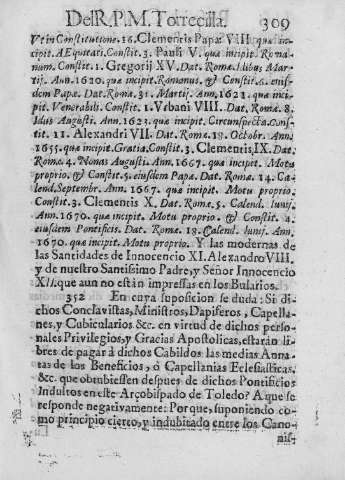 Del R. P. M. Torrecilla. 309
Vt in Constitutione. 16. Clementis Papæ VIII. quæ in-
cipit. A Equitati. Constit. 3. Pauli V. quæ incipit. Roma-
num. Constit. 1. Gregorij XV. Dat. Romæ. Idibus Mar-
tij. Ann. 1620. quæ incipit. Romanus, & Constit. 6. eius-
dem Papæ. Dat. Romæ. 31. Martij. Ann. 1623. quæ inci-
pit. Venerabili. Constit. 1. Vrbani VIII. Dat. Romæ. 8.
Idus Augusti. Ann. 1623. quæ incipit. Circunspecta. Cons-
tit. 11. Alexandri VII. Dat. Romæ. 18. Octobr. Ann.
1655. quæ incipit. Gratia. Constit. 3. Clementis. IX. Dat.
Romæ. 4. Nonas Augusti. Ann. 1667. quæ incipit. Motu
proprio. & Constit. 5. eiusdem Papæ. Dat. Romæ. 14. Ca-
lend. Septembr. Ann. 1667. quæ incipit. Motu proprio.
Constit. 3. Clementis X. Dat. Romæ. 5. Calend. Iunij.
Ann. 1670. quæ incipit. Motu proprio. & Constit. 4.
eiusdem Pontificis. Dat. Romæ. 18. Calend. Iunij. Ann.
1670. quæ incipit. Motu proprio. Y las modernas de
las Santidades de Innocencio XI. Alexandro VIII.
y de nuestro Santissimo Padre, y Señor Innocencio
XII. que aun no estàn impressas en los Bularios.
352 En cuya suposicion se duda: Si di-
chos Conclavistas, Ministros, Dapiferos, Capella-
nes, y Cubicularios &c. en virtud de dichos perso-
nales Privilegios, y Gracias Apostolicas, estaràn li-
bres de pagar à dichos Cabildos las medias Anna-
tas de los Beneficios, ò Capellanias Eclesiasticas,
&c. que obtubiessen despues de dichos Pontificios
Indultos en este Arçobispado de Toledo? A que se
responde negativamente: Porque, suponiendo co-
mo principio cierto, y indubitado entre los Cano-
nis-